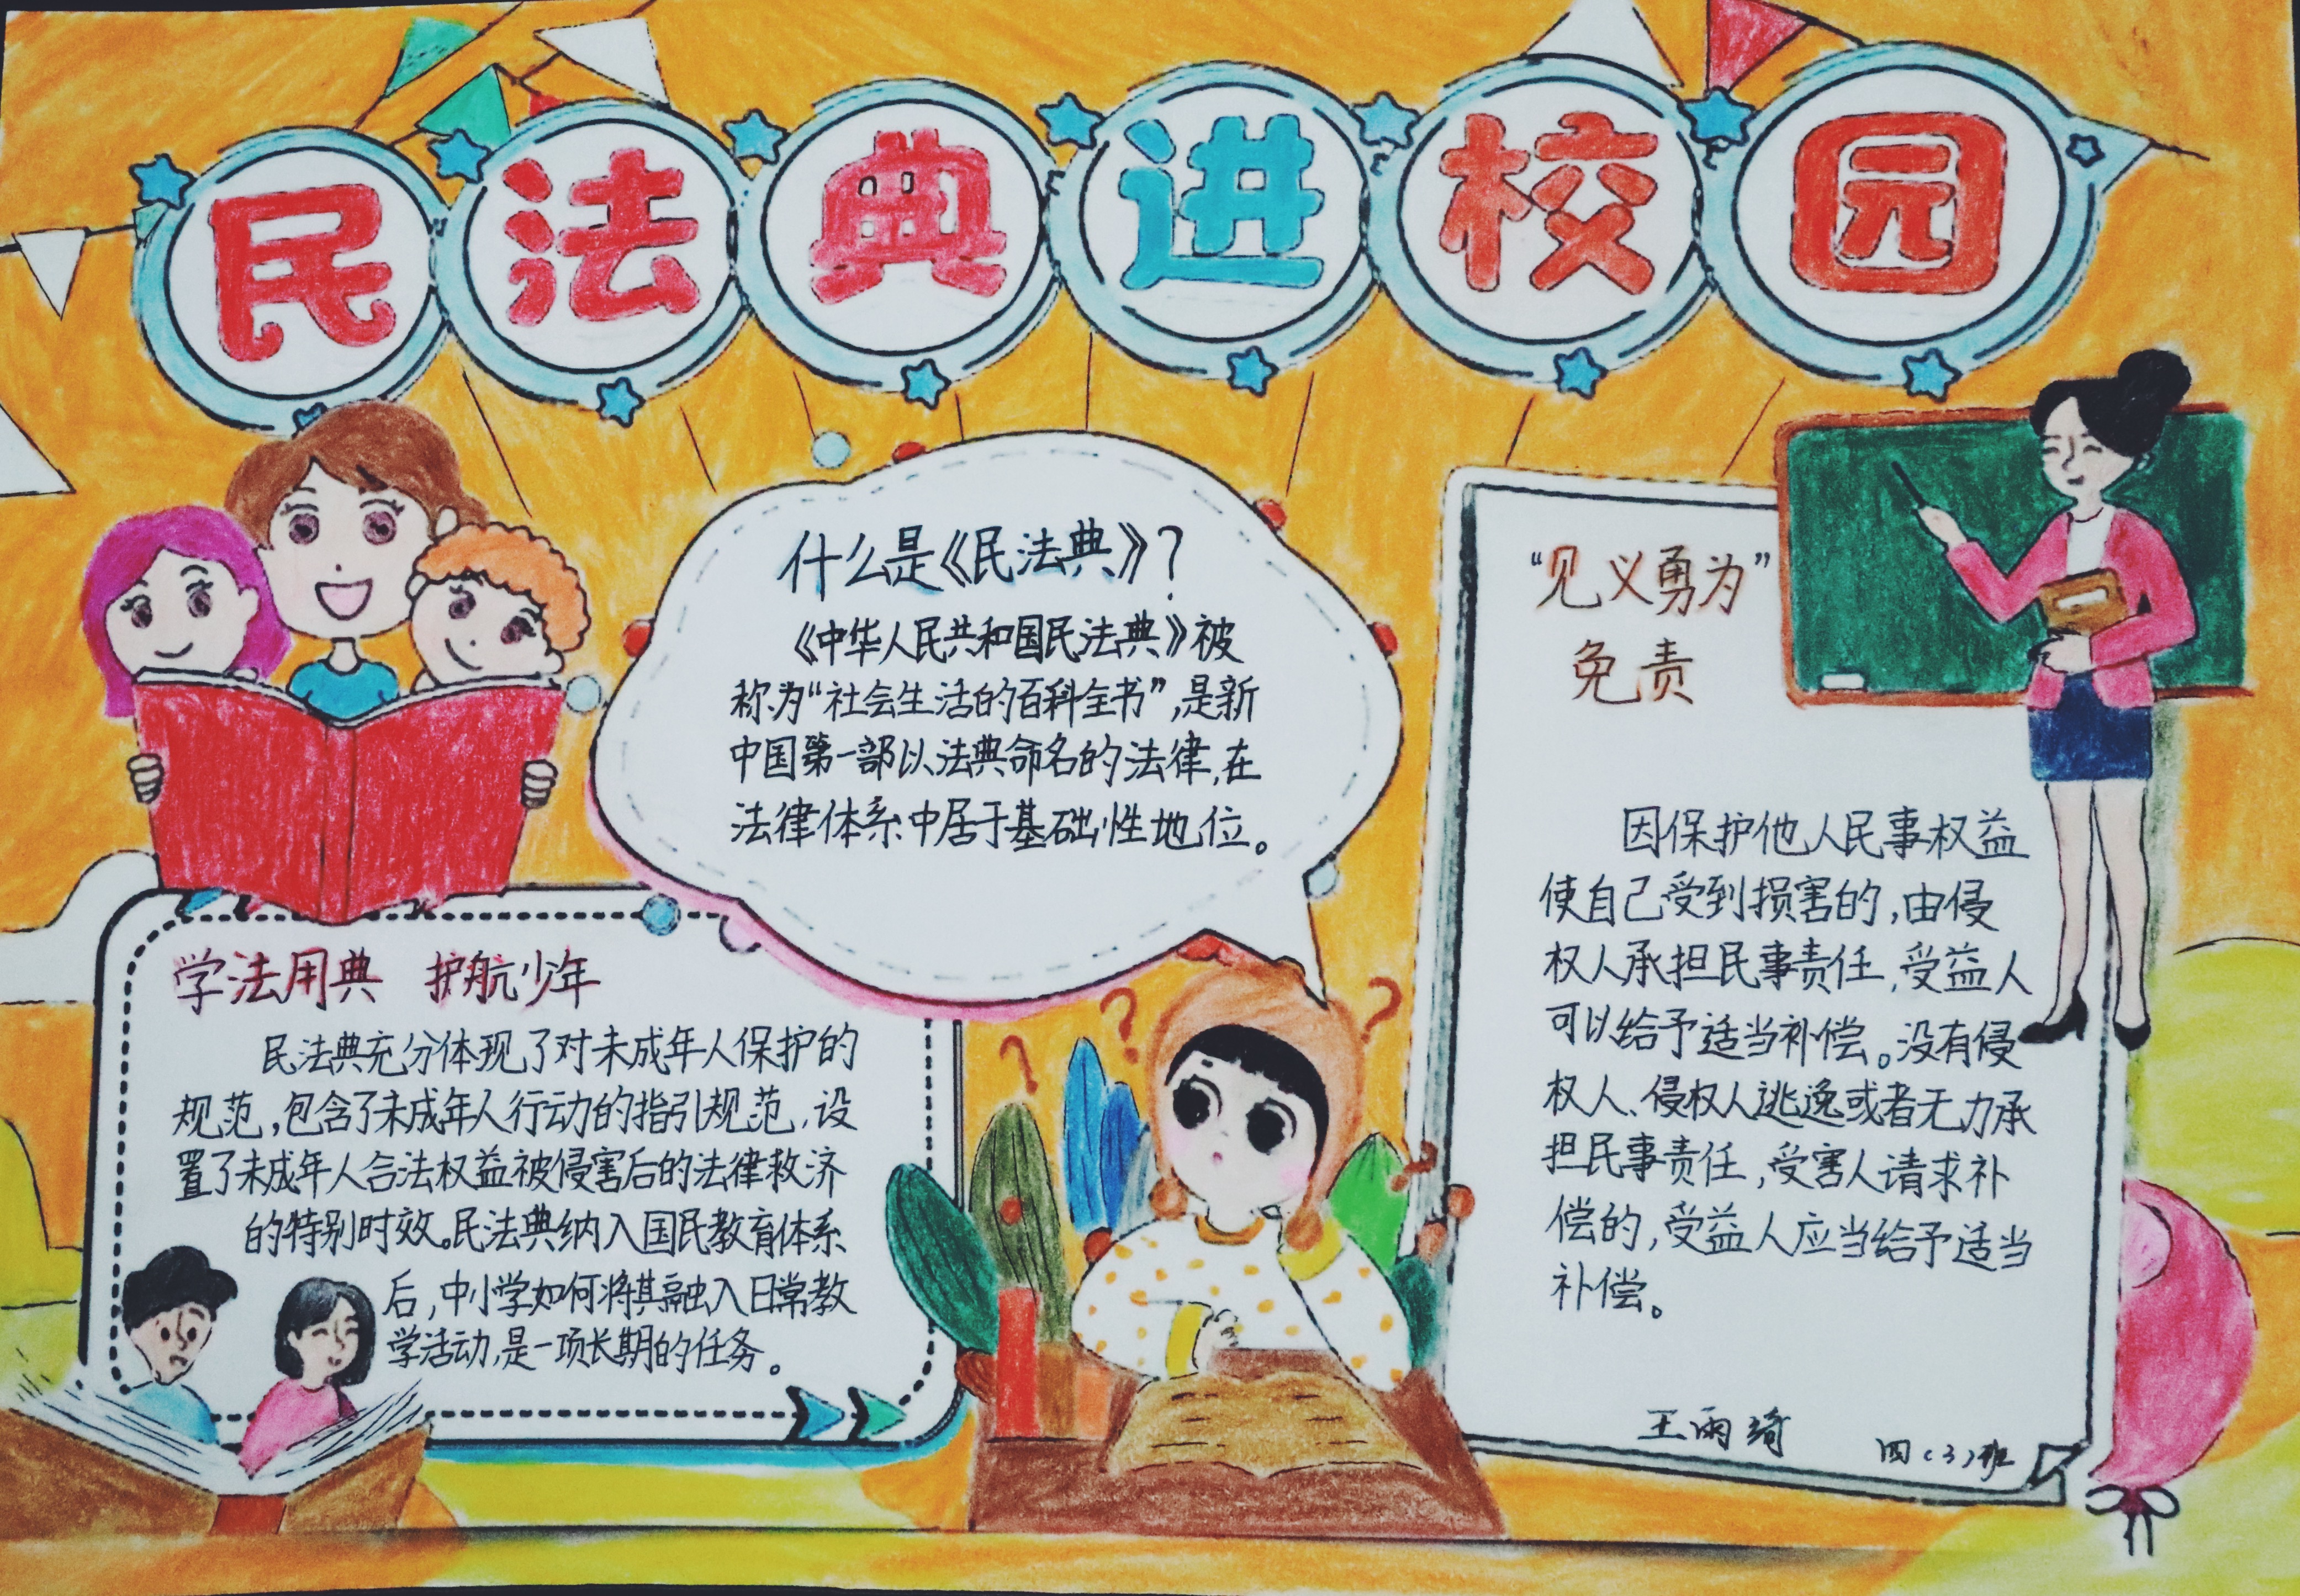 民法典进校园
什么是《民法典》?
《中华人民共和国民法典》被
称为“社会生活的百科全书”,是新
中国第一部以法典命名的法律,在
法律体系中居于基础性地位。
学法用典 护航少年
民法典充分体现了对未成年人保护的
规范,包含了未成年人行动的指引规范,设
置了未成年人合法权益被侵害后的法律救济
的特别时效。民法典纳入国民教育体系
后,中小学如何将其融入日常教
学活动,是一项长期的任务。
“见义勇为”
免责
因保护他人民事权益
使自己受到损害的,由侵
权人承担民事责任,受益人
可以给予适当补偿。没有侵
权人、侵权人逃逸或者无力承
担民事责任,受害人请求补
偿的,受益人应当给予适当
补偿。
王雨绮
四(3)班
? ? ? ?